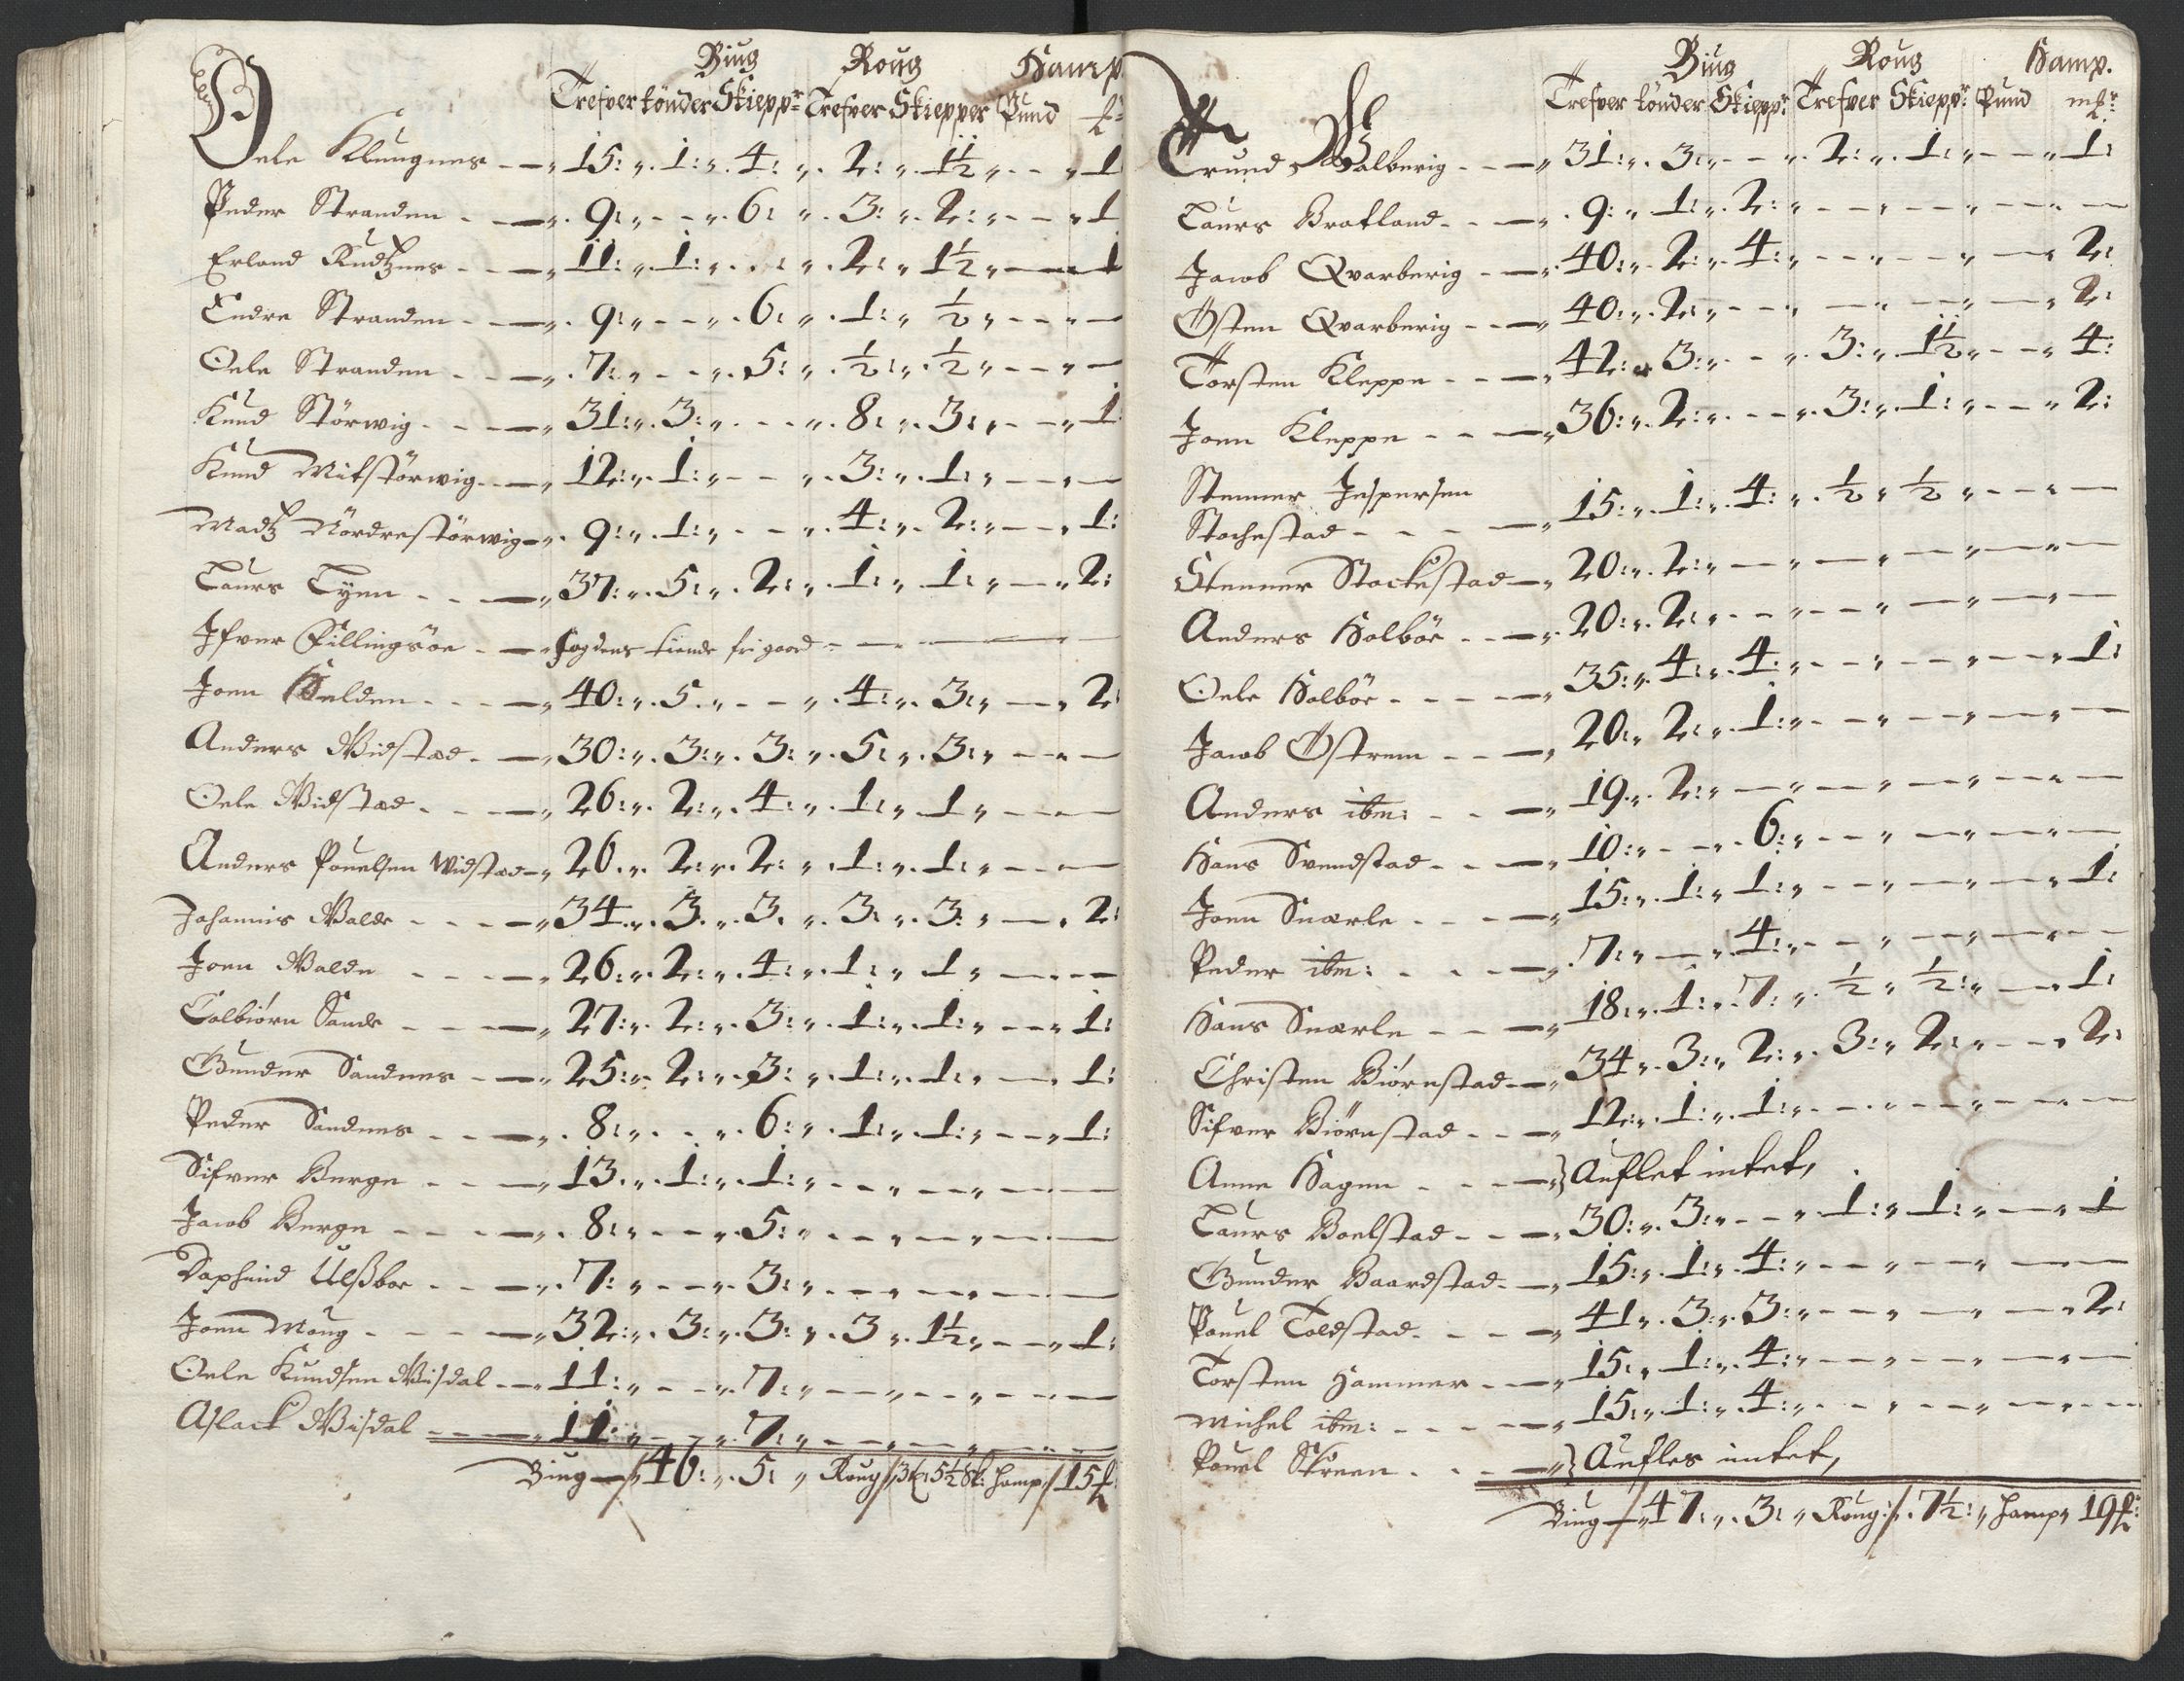 Biug Roug Hamp
Trefver tönder Skiepp: Trefver Skiepper Pund
Oele Klungnes 15: 1: 4: 2: 1½ 1
Peder Stranden 9: 6: 3: 2: 1
Erland Rudtznes 11: 1: 2: 1½ 1
Endre Stranden 9: 6: 1: ½
Oele Stranden 7: 5: ½: ½
Knud Störwig 31: 3: 8: 3: 1
Knud Mitstörwig 12: 1: 3: 1:
Madtz Nördrestörwig 9: 1: 4: 2: 1:
Laurs Tyen 37: 5: 2: 1: 1: 2:
Ifver Fillingsöe fogdens tiende fri gaard
Joen Helden 40: 5. 4: 3: 2:
Anders Widstad 30: 3: 3: 5: 3:
Oele Widstad 26: 2: 4: 1: 1
Anders Pouelsen Widstad 20. 2: 2: 1: 1:
Johannis Walde 34. 3. 3. 3: 3: 2:
Joen Walde 26: 2: 4: 1: 1
Colbiörn Sande 27: 2: 3: 1: 1: 1:
Gunder Sandnes 25: 2: 3: 1: 1: 1:
Peder Sandnes 8: 6: 1: 1: 1:
Sifver Berge 13. 1: 1:
Jacob Berge 8: 5:
Daphind Ulßboe 7: 3:
Joen Moug 32: 3: 3: 3 1½ 1:
Oele Knudsen Wisdal 11: 7:
Aslack Wisdal 11: 7:
Biug 46: 5: Roug 5½ Sk: Hamp: 15
Biug Roug Hamp.
Trefver tönder Skiepp: Trefver Skiepp: Pund mk:
Trund Walberig 31: 3: 2: 1: 1:
Laurs Bratland 9: 1: 2:
Jacob Qvarberig 40: 2: 4: 2:
Östen Qvarberig 40: 2: 2:
Torsten Kleppe 42: 3: 3: 1½ 4:
Joen Kleppe 36: 2: 3: 1: 2:
Stenner Jespersen
Stochestad 15: 1: 4: ½ ½
Stenner Stockestad 20: 2:
Anders Holböe 20: 2:
Oele Holböe 35: 4: 4: 1:
Jacob Östrem 20: 2: 1:
Anders ibm: 19. 2:
Hans Svendstad 10: 6:
Joen Snærle 15: 1: 1: 1:
Peder ibm: 7: 4:
Hans Snærle 18: 1: 7: ½ ½: 1:
Christen Biörnstad 34 3: 2: 3: 2: 2:
Sifver Biörnstad 12: 1: 1:
Anne Hagen Auflet intet,
Laurs Boelstad 30: 3: 1: 1: 1
Gunder Baardstad 15: 1: 4:
Pouel Toldstad 41 3: 3: 2:
Torsten Hammer 15: 1: 4:
Michel ibm: 15: 1: 4:
Pouel Skreen Aufles intet,
Biug 47: 3: Roug: 7½: Hamp 19